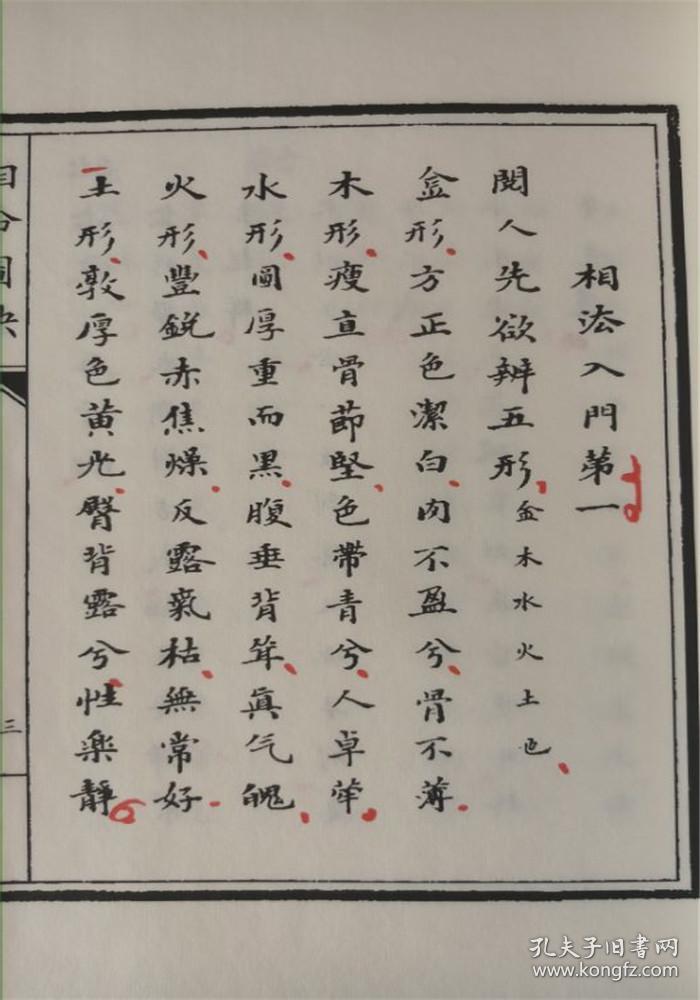 相法入門第一
閱人先欲辨五形金木水火土也
金形方正色潔白肉不盈兮骨不薄
木形瘦直骨節堅色帶青兮人卓犖
水形圓厚重而黑腹垂背聳真气魄
火形豐銳赤焦燥反露氣枯無常好
土形敦厚色黃光臀背露兮性樂靜
三
孔夫子旧书网
www.kongfz.com